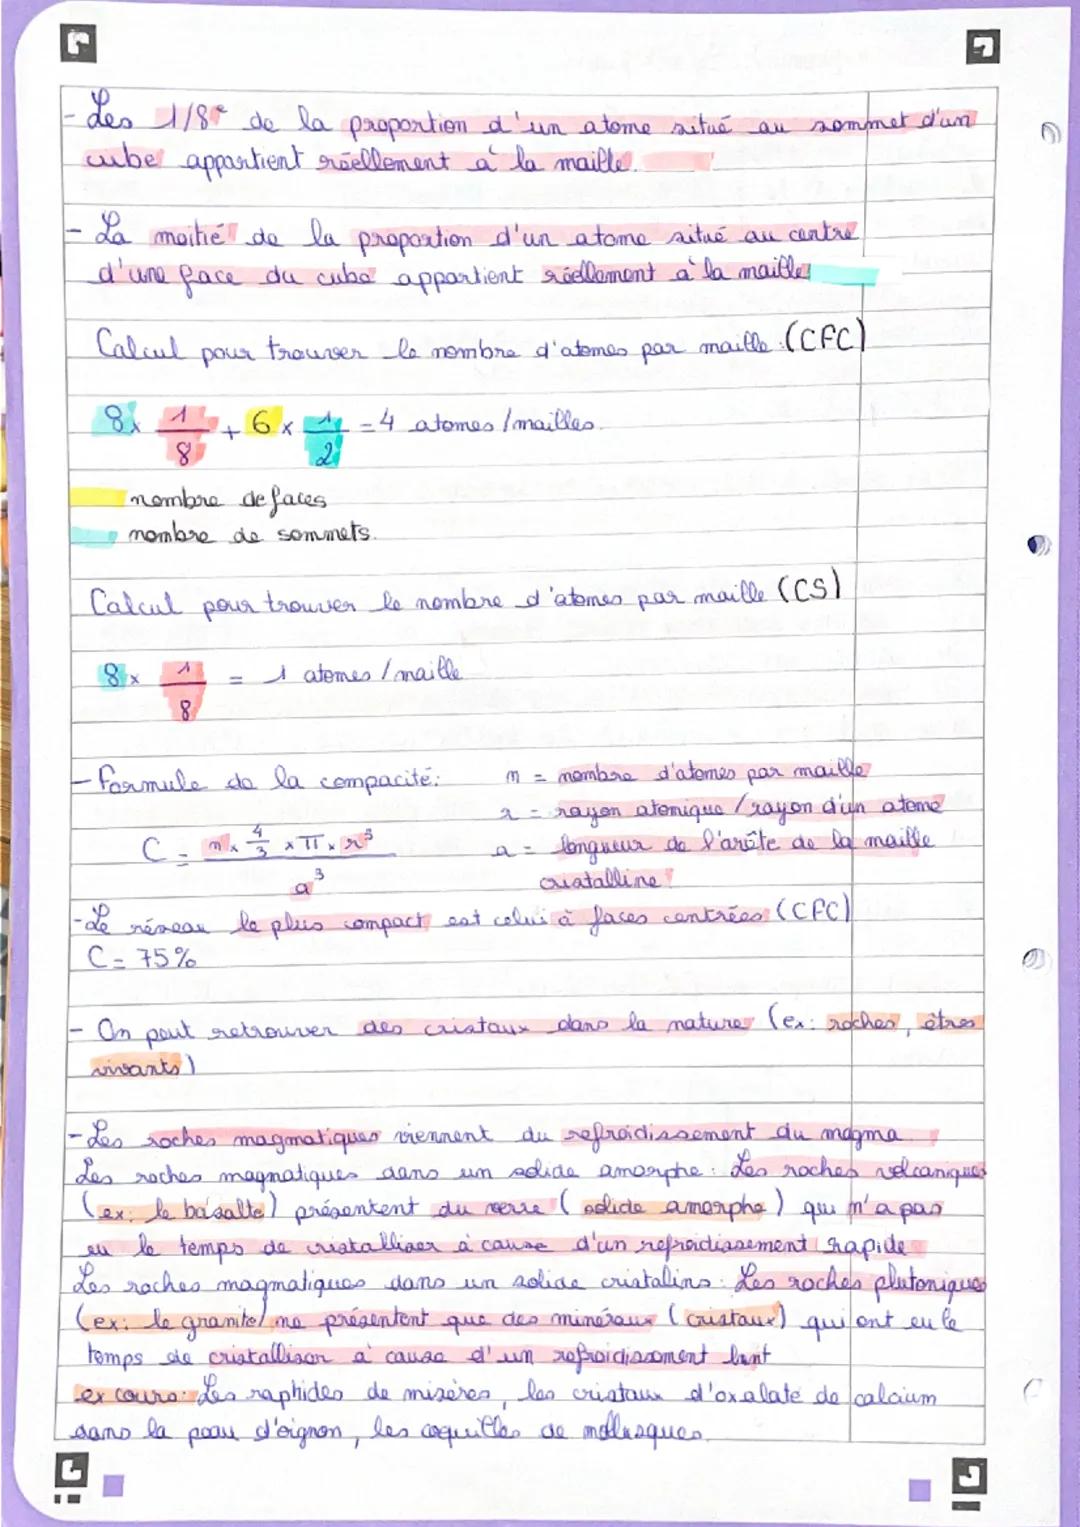 - Les 1/8e de la proportion d'un atome situé au sommet d'un
cube appartient réellement à la maille.
- La moitié de la proportion d'un atome situé au centre
d'une face du cube appartient réellement à la maille
Calcul pour trouver le nombre d'atomes par maille : (CFC)
8 x 1/8 + 6 x 1/2 = 4 atomes / mailles.
nombre de faces
nombre de sommets.
Calcul pour trouver le nombre d'atomes par maille (CS)
8 x 1/8 = 1 atomes / maille
- Formule de la compacité: n = nombre d'atomes par maille
r = rayon atomique / rayon d'un atome
C = n x 4/3 x π x r³ / a³
a = longueur de l'arête de la maille
cristalline
- Le réseau le plus compact est celui à faces centrées (CFC)
C = 75%
- On peut retrouver des cristaux dans la nature (ex: roches, êtres
vivants)
- Les roches magmatiques viennent du refroidissement du magma.
Les roches magmatiques dans un solide amorphe : Les roches volcaniques
(ex: le basalte) présentent du verre (solide amorphe) qui n'a pas
eu le temps de cristalliser à cause d'un refroidissement rapide
Les roches magmatiques dans un solide cristalins : Les roches plutoniques
(ex: le granite) ne présentent que des minéraux (cristaux) qui ont eu le
temps de cristalliser à cause d'un refroidissement lent
ex cours: Les raphides de misères, les cristaux d'oxalate de calcium
dans la peau d'oignon, les coquilles de mollusques.